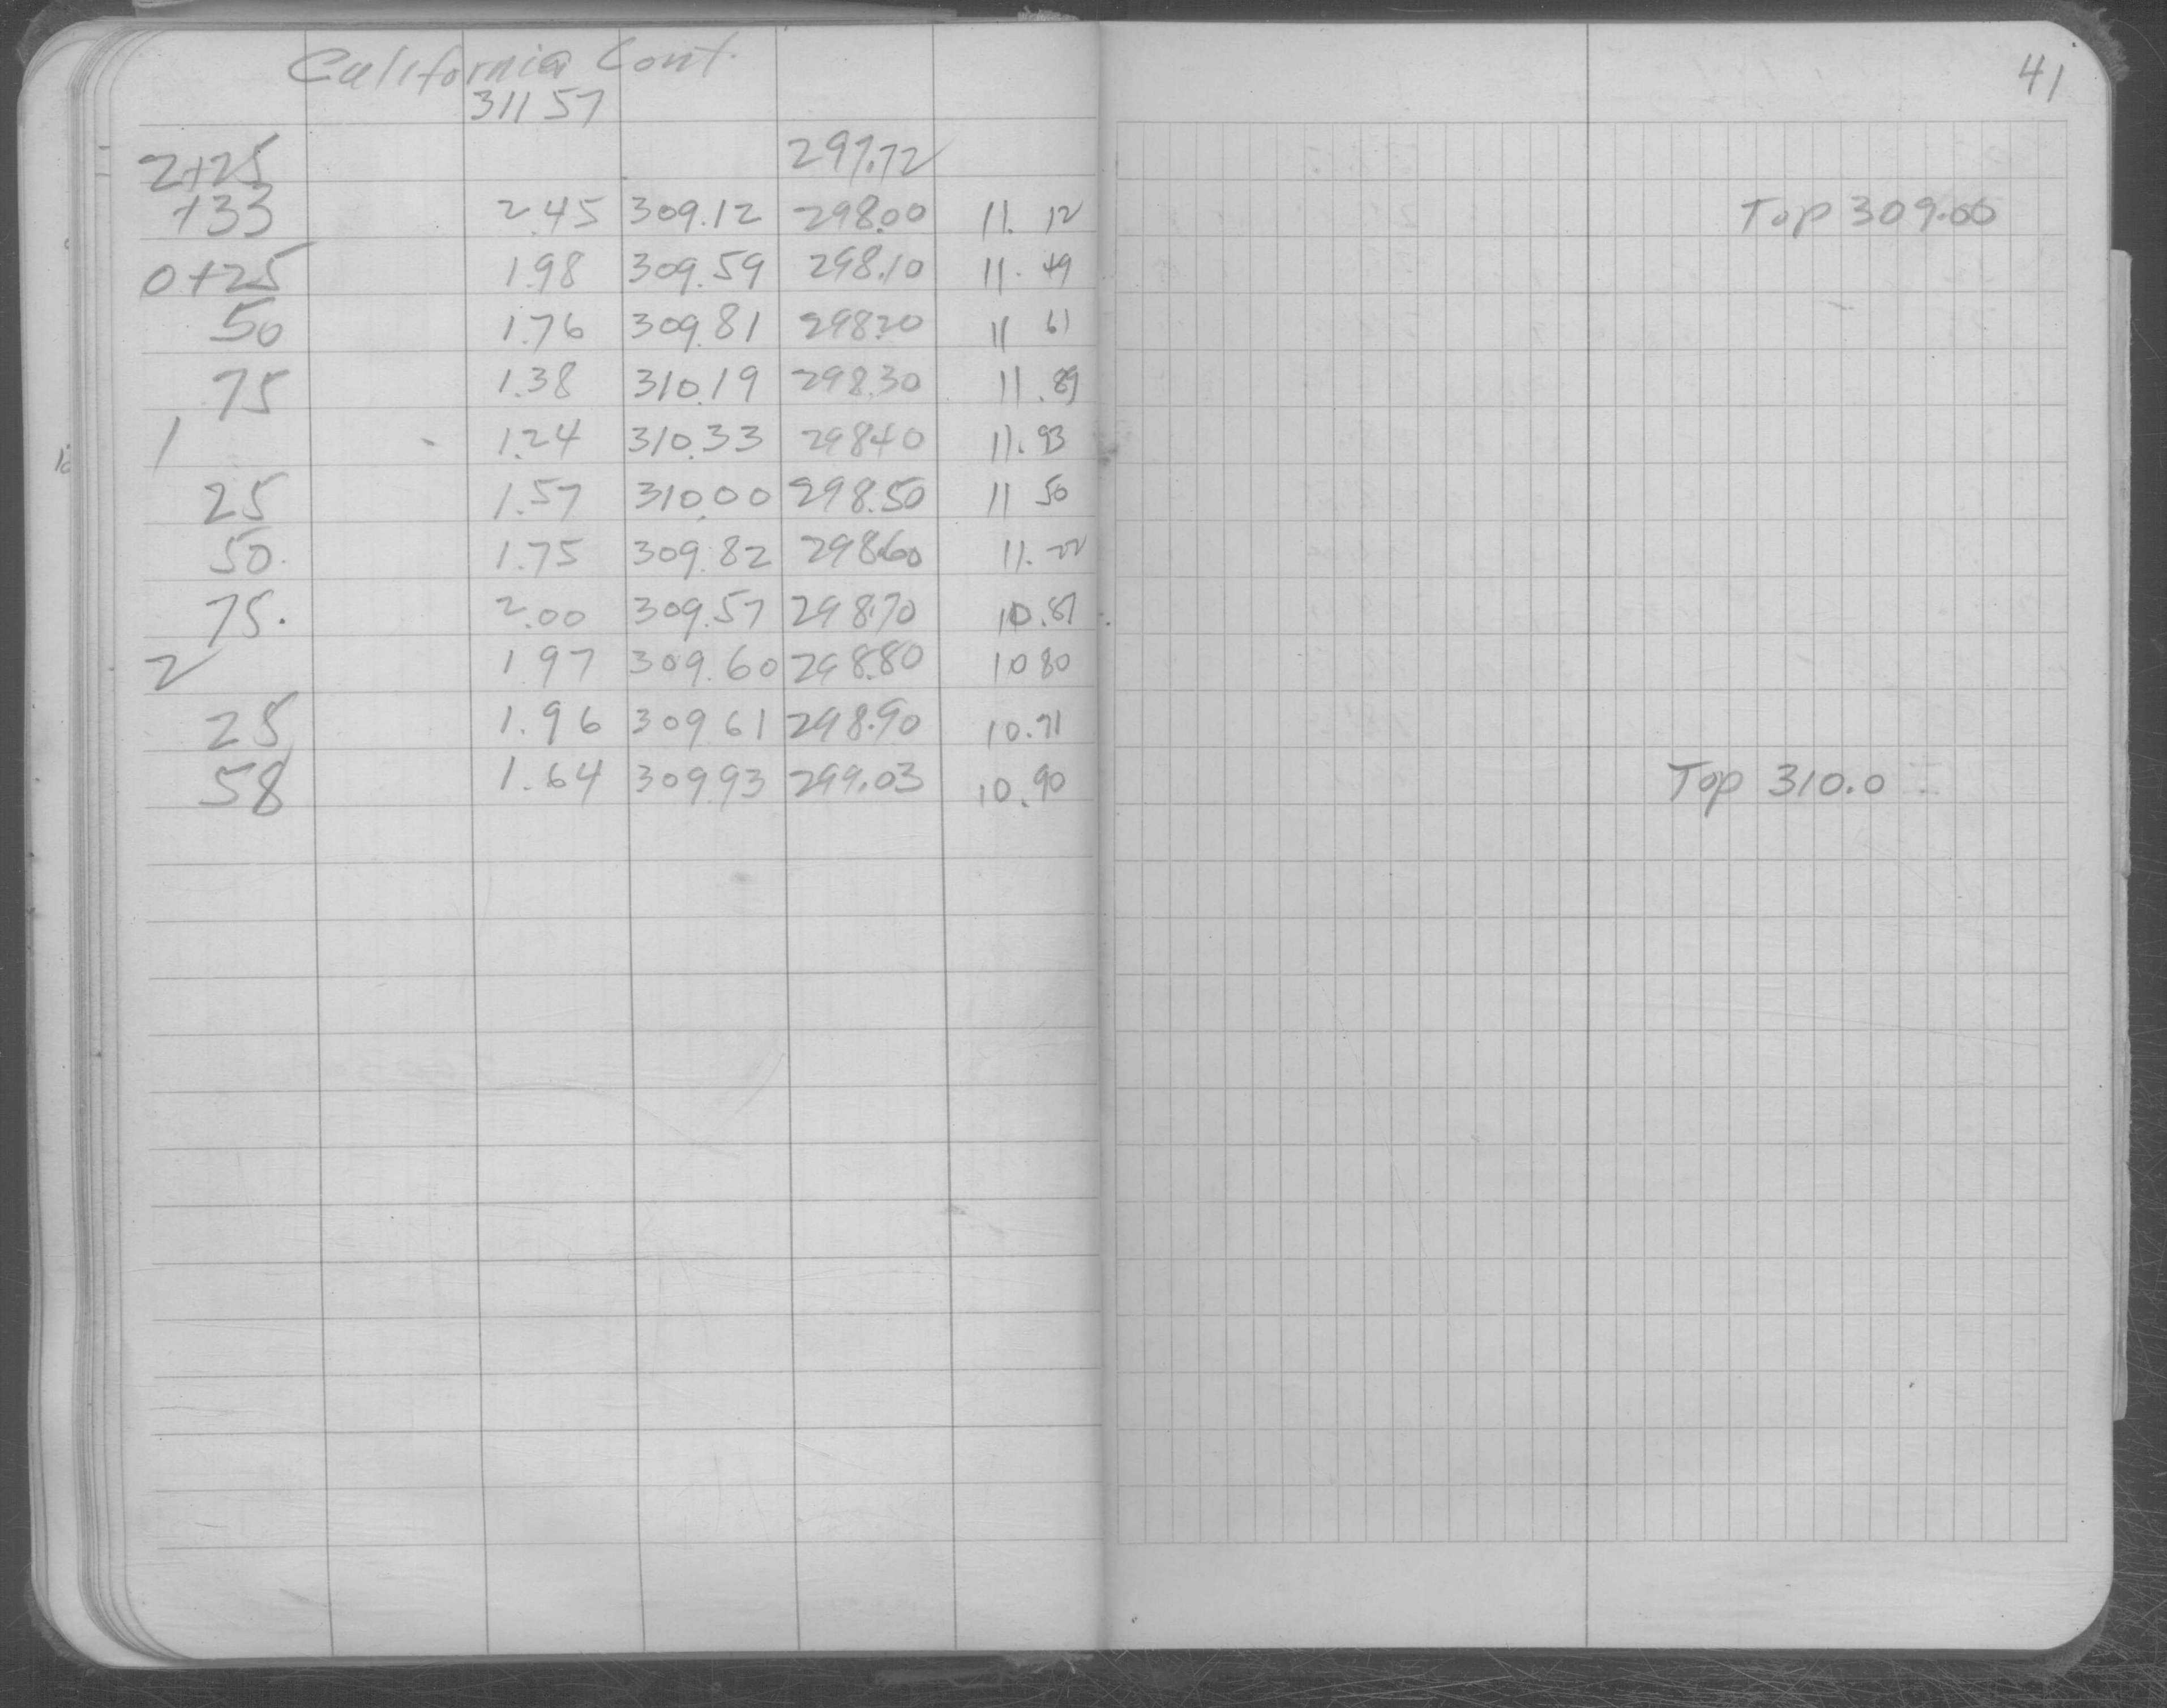 California Cont.
41
311 57
2+25 297.72
+33 2.45 309.12 298.00 11. 12 Top 309.00
0+25 1.98 309.59 298.10 11. 49
50 1.76 309.81 298.20 11 61
75 1.38 310.19 298.30 11.89
1 1.24 310.33 298.40 11.93
25 1.57 310.00 298.50 11 50
50. 1.75 309.82 298.60 11.22
75. 2.00 309.57 298.70 10.87
2 1.97 309.60 298.80 10 80
25 1.96 309 61 298.90 10.71
58 1.64 309.93 299.03 10.90 Top 310.0